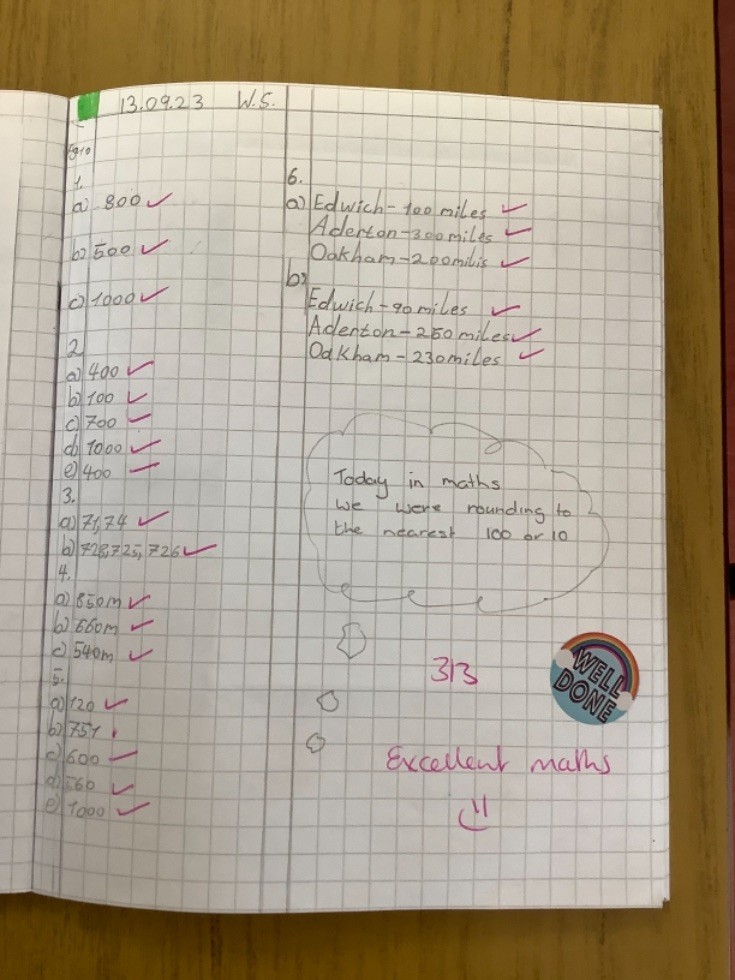 13.09.23 W.S.
1.
a) 800
b) 500
c) 1000
2
a) 400
b) 100
c) 700
d) 1000
e) 400
3.
a) 71,74
b) 728,725,726
4.
a) 850m
b) 660m
c) 540m
5.
a) 120
b) 751
c) 600
d) 560
e) 1000
6.
a) Edwich - 100 miles
Aderton - 300 miles
Oakham - 200 milis
b)
Edwich - 90 miles
Aderton - 250 miles
Oakham - 230 miles
Today in maths
we were rounding to
the nearest 100 or 10
313
WELL
DONE
Excellent maths